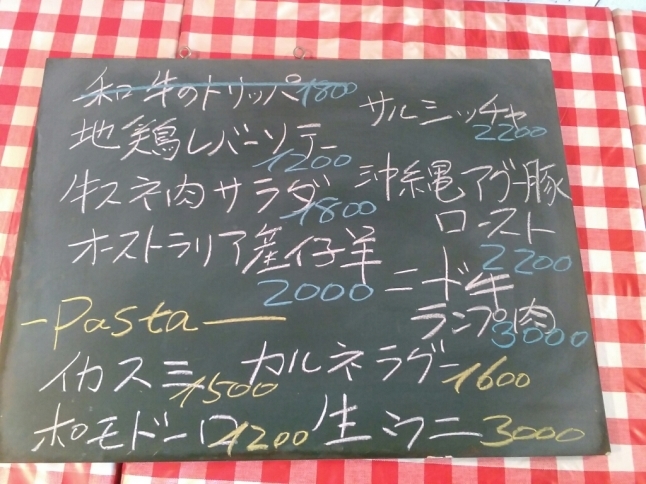 和牛のトリッパ 1800
地鶏レバーソテー
1200
牛スネ肉サラダ
1800
オーストラリア産仔羊
2000
サルシッチャ
2200
沖縄アグー豚
ロースト
2200
ニド牛
ランプ肉
3000
-Pasta-
イカスミ 1500
カルネラグー 1600
ポモドーロ 1200
生ウニ 3000